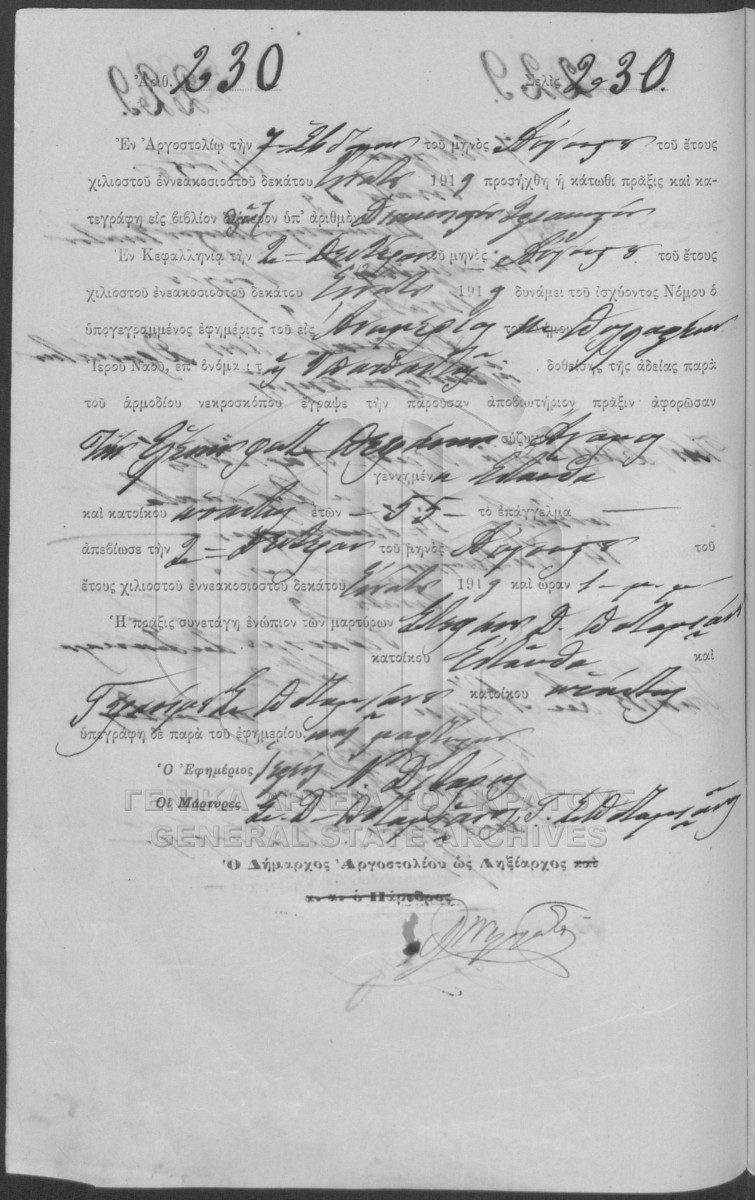 Ἀριθ. 230 Σελὶς 230.
Ἐν Ἀργοστολίῳ τὴν 7 Ἑβδόμην τοῦ μηνὸς Αὐγούστου τοῦ ἔτους
χιλιοστοῦ ἐννεακοσιοστοῦ δεκάτου Ἐνάτου 1919 προσήχθη ἡ κάτωθι πρᾶξις καὶ κα-
τεγράφη εἰς βιβλίον ὑπ' ἀριθμὸν Διακοσιοστὸν Τριακοστὸν
Ἐν Κεφαλληνίᾳ τὴν 2 = Δευτέραν τοῦ μηνὸς Αὐγούστου τοῦ ἔτους
χιλιοστοῦ ἐνεακοσιοστοῦ δεκάτου Ἐνάτου 1919 δυνάμει τοῦ ἰσχύοντος Νόμου ὁ
ὑπογεγραμμένος ἐφημέριος τοῦ εἰς
Ἱεροῦ Ναοῦ, ἐπ' ὀνόματι ἡ Ὑπαπαντὴ δοθείσης τῆς ἀδείας παρὰ
τοῦ ἁρμοδίου νεκροσκόπου ἔγραψε τὴν παροῦσαν ἀποβιωτήριον πρᾶξιν ἀφορῶσαν
Τὴν Ἑλένην σύζυγο
γεννημένη Ἐνταῦθα
καὶ κατοίκου ἐτῶν - 55 - τὸ ἐπάγγελμα ——
ἀπεβίωσε τὴν 2 = Δευτέραν τοῦ μηνὸς Αὐγούστου τοῦ
ἔτους χιλιοστοῦ ἐννεακοσιοστοῦ δεκάτου Ἐνάτου 1919 καὶ ὥραν 1 - μ. μ
Ἡ πρᾶξις συνετάγη ἐνώπιον τῶν μαρτύρων Στεφάνου Δ. Ποταμιάνου
κατοίκου Ἐνταῦθα καὶ
Γερασίμου Σπ. Ποταμιάνου κατοίκου
ὑπεγράφη δὲ παρὰ τοῦ ἐφημερίου. καὶ μαρτύρων
Ὁ Ἐφημέριος Ἱερεὺς Ν.
Οἱ Μάρτυρες Στ. Δ. Ποταμιάνος Γ. Σ. Ποταμιάνος
ΓΕΝΙΚΑ ΑΡΧΕΙΑ ΤΟΥ ΚΡΑΤΟΥΣ
GENERAL STATE ARCHIVES
Ὁ Δήμαρχος Ἀργοστολίου ὡς Ληξίαρχος καὶ
ὁ Πάρεδρος